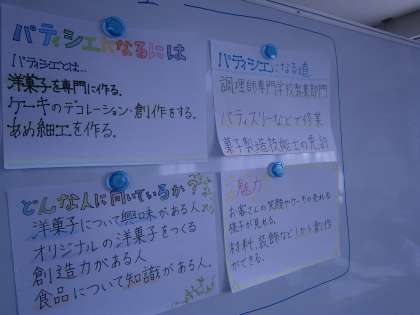 パティシエになるには
パティシエとは…
洋菓子を専門に作る。
ケーキのデコレーション・創作をする。
あめ細工を作る。
パティシエになる道
調理師専門学校製菓部門
パティスリーなどで修業
菓子製造技能士の免許
どんな人に向いているか?
洋菓子について興味がある人
オリジナルの洋菓子をつくる
創造力がある人
食品について知識がある人。
魅力
お客さんの笑顔やケーキの売れる
様子が見える。
材料、装飾など1から創作
ができる。